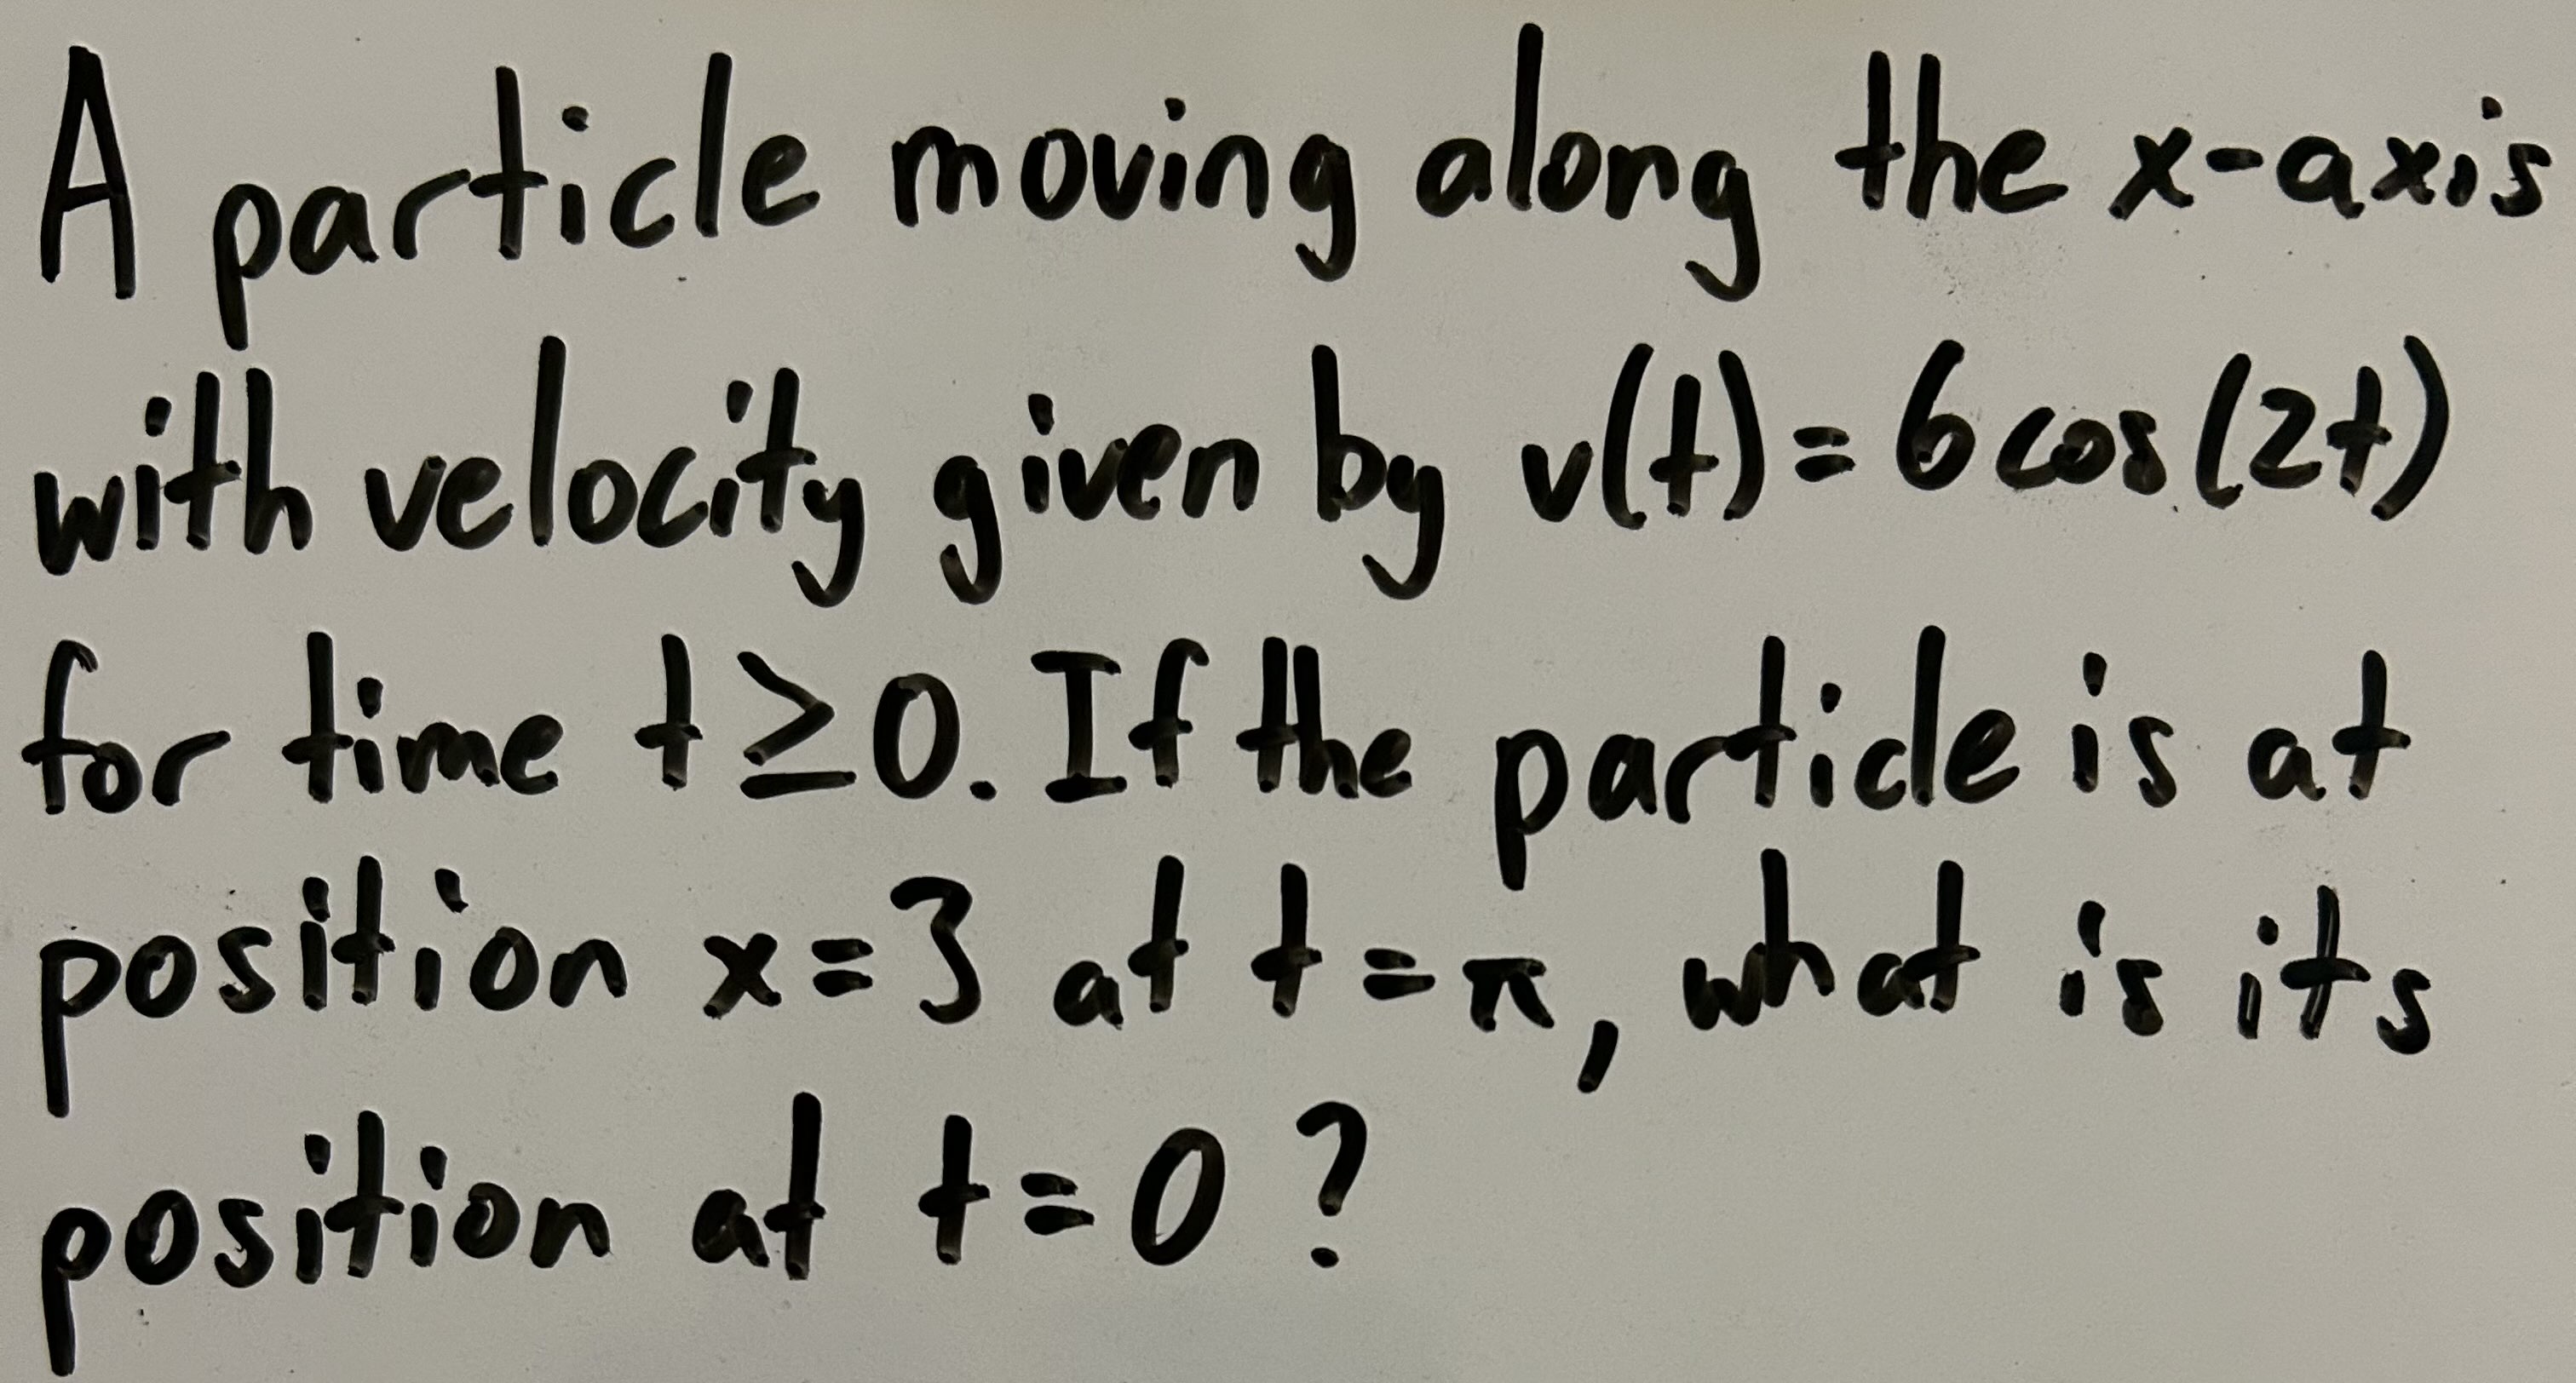 A particle moving along the x-axis
with velocity given by v(t) = 6 cos (2t)
for time t ≥ 0. If the particle is at
position x = 3 at t = π, what is its
position at t = 0 ?